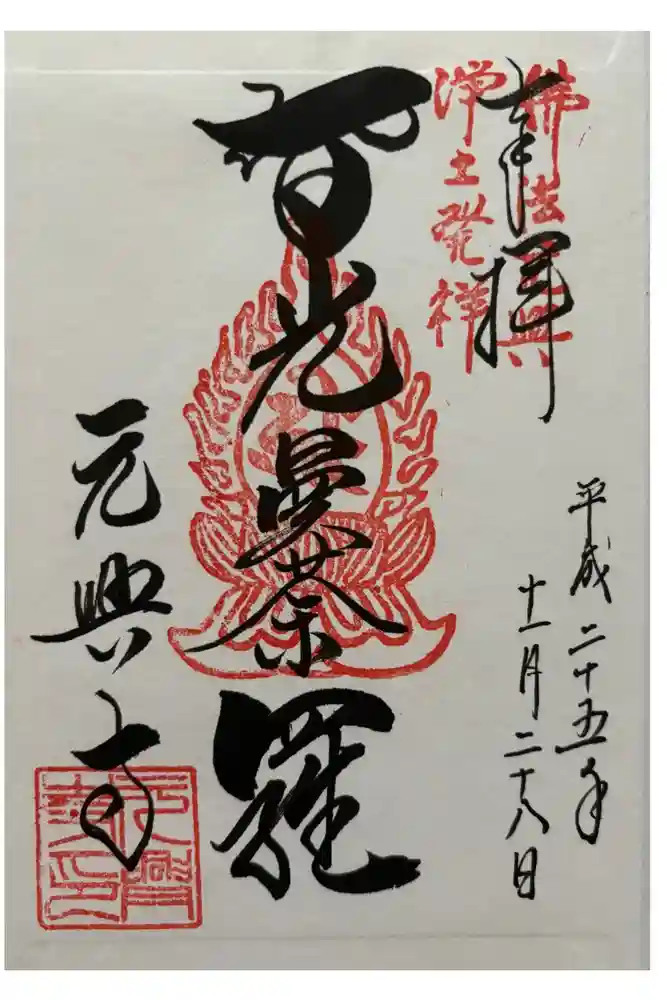 奉拝
佛法興
浄土発祥
平成二十五年
十一月二十八日
智光曼荼羅
元興寺